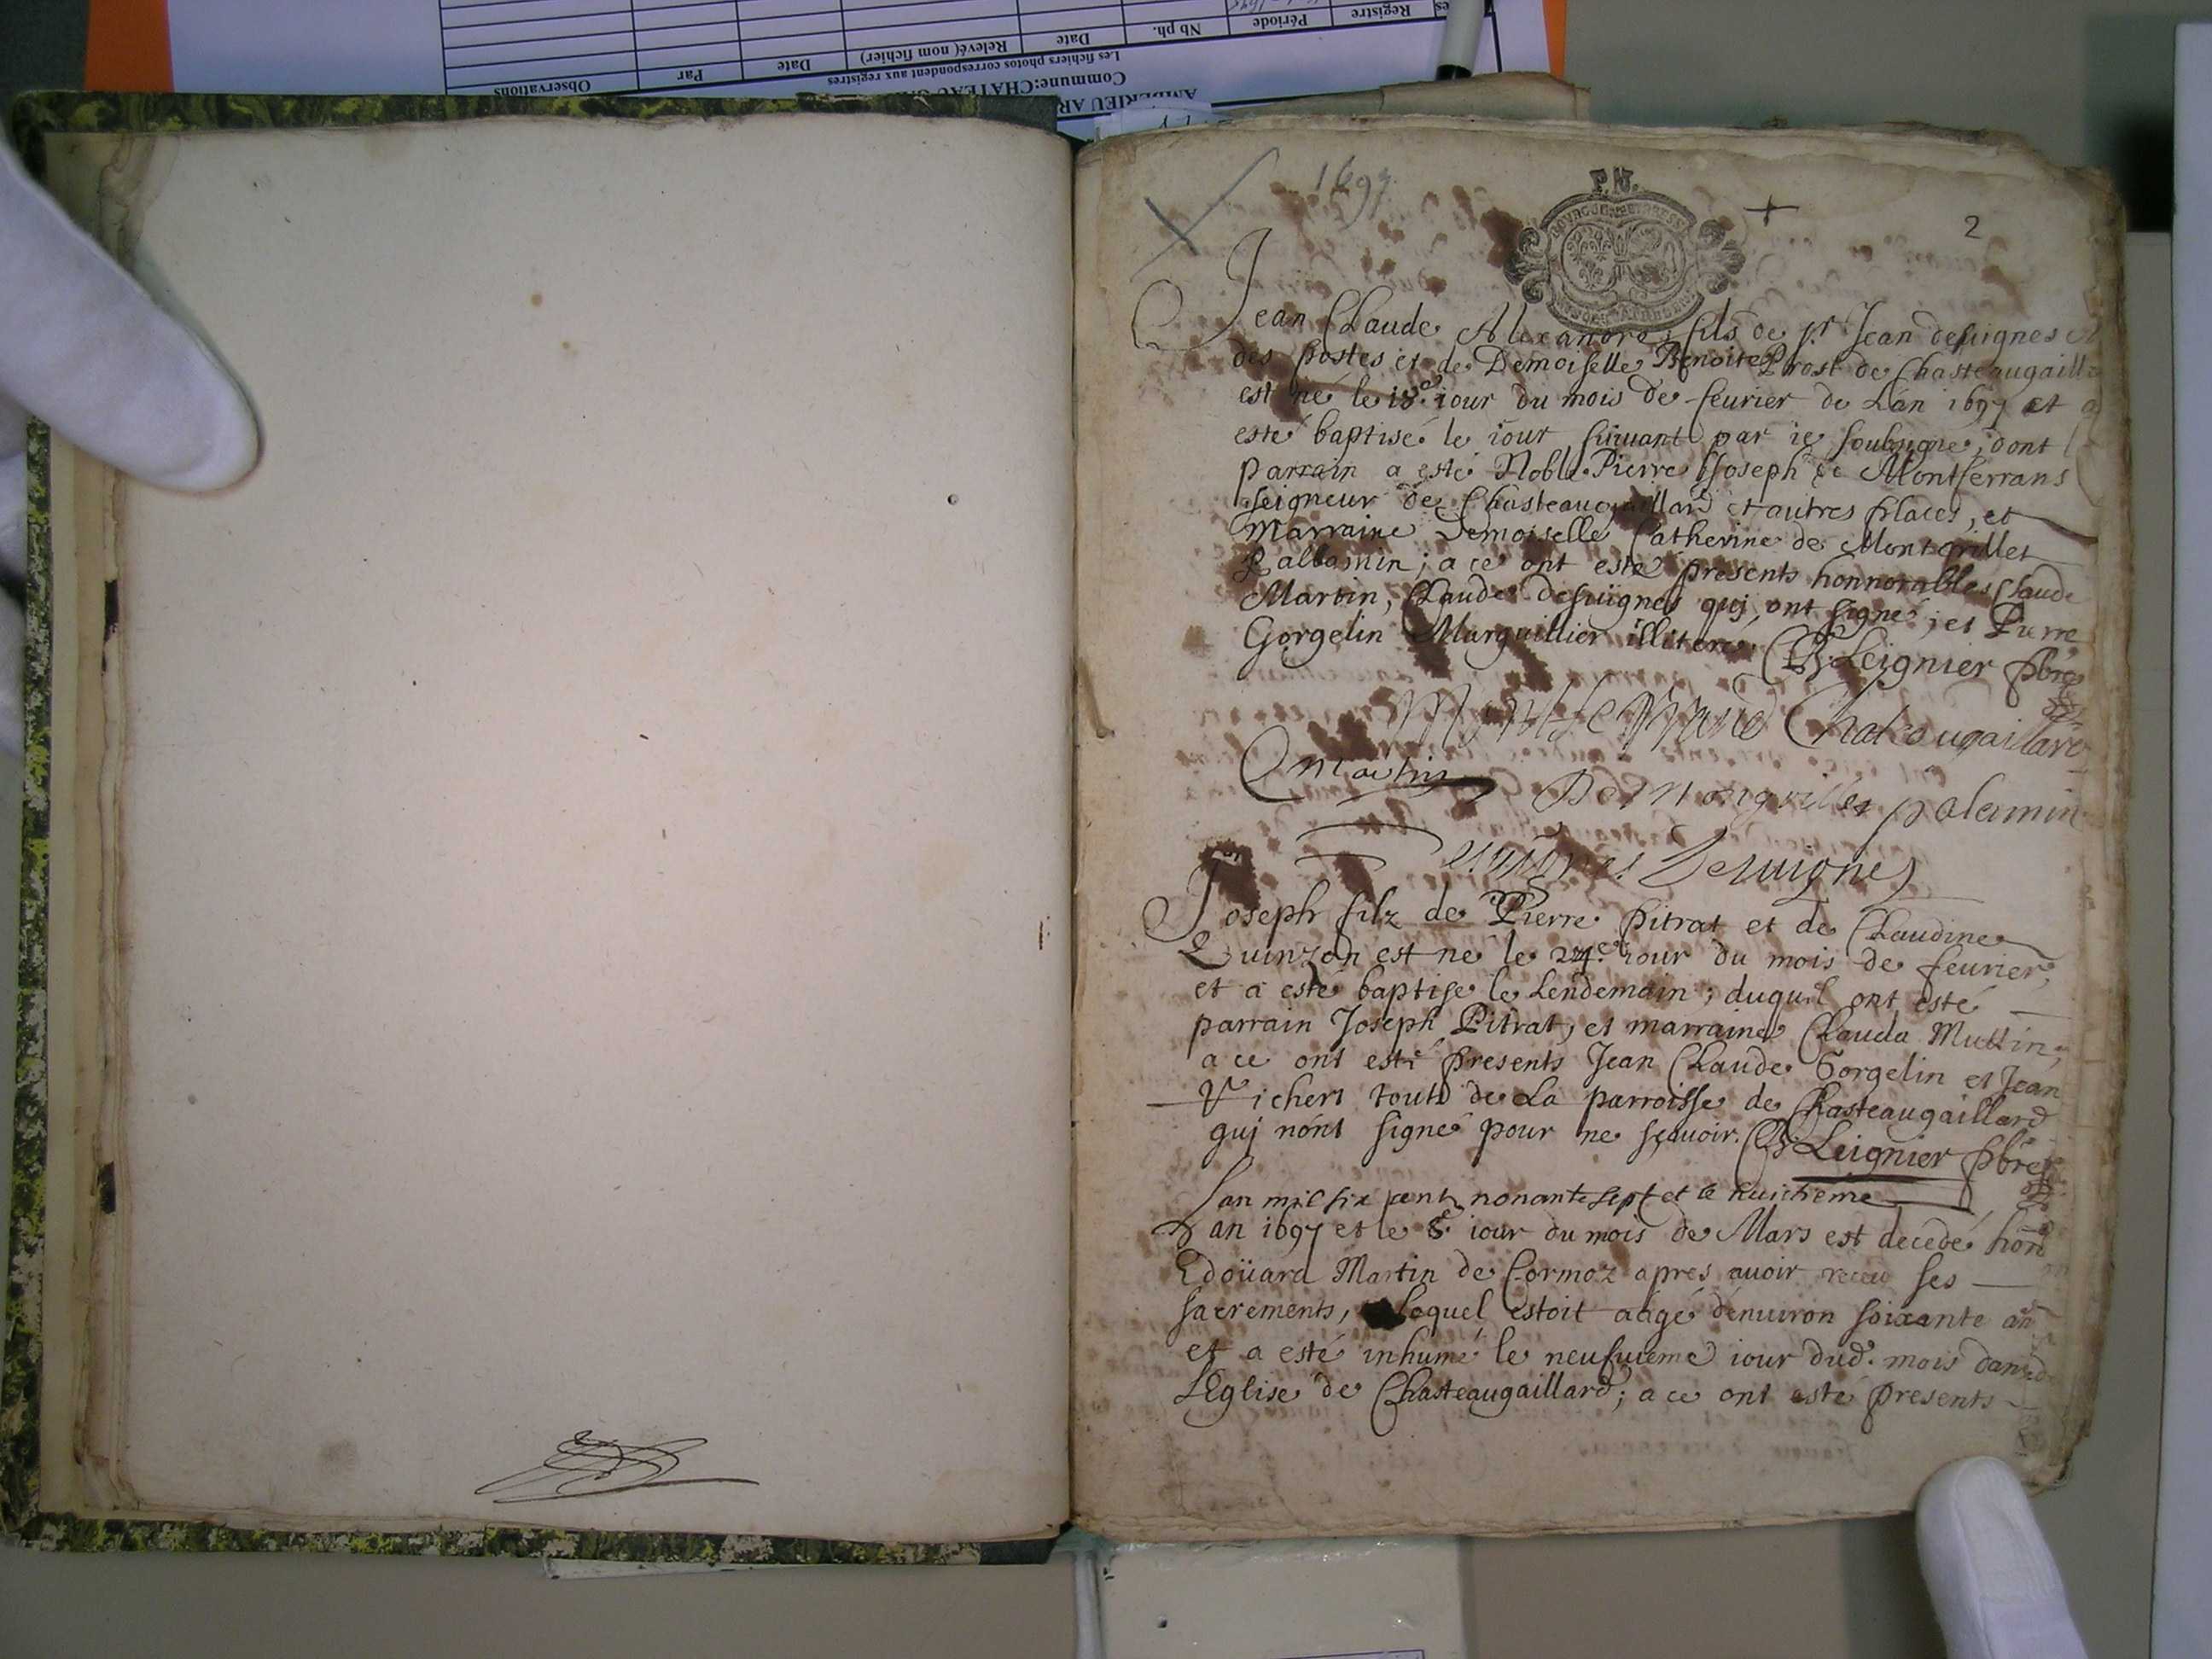 Observations
Par
Date
Relevé( nom fichier)
Date
Nb ph.
Période
Registre
Les fichiers photos correspondent aux registres
Commune:CHATEAU
AMBERIEU AR
1697
P.N.
2
Jean Claude Alexandre, fils de sr Jean desuignes
des postes et de Demoiselle Benoite Prost de Chasteaugaill
est né le 18e iour du mois de feurier de Lan 1697 et a
esté baptisé le iour suiuant par ie soubsigné, dont l
parrain a esté Noble Pierre Joseph de Montferrans
seigneur de Chasteaugaillard et autres places, et
Marraine Demoiselle Catherine de Montgrillet
Pallamin; a ce ont esté presents honnorables Claude
Martin, Claude desuignes qui ont signé; et Pierre
Gorgelin Marguillier illiteré. Leignier pbre
Montferrand Chateaugaillard
C martin
De Mongrillet palamin
desuignes Desuignes
Joseph filz de Pierre Pitrat et de Claudine
Quinzon est né le 24e iour du mois de feurier,
et a esté baptisé le Lendemain; duquel ont esté
parrain Joseph Pitrat, et marraine Clauda Muttin;
a ce ont esté presents Jean Claude Gorgelin et Jean
Vichert touts de La parroisse de Chasteaugaillard
qui nont signé pour ne sçauoir. Leignier pbre
Lan mil six cent nonante sept et le huictieme
Lan 1697 et le 8e iour du mois de Mars est decedé hon
Edoüard Martin de Cormoz apres auoir receu ses
sacrements, lequel estoit aagé denuiron soixante an
et a esté inhumé le neufuieme iour dud. mois dans
LEglise de Chasteaugaillard; a ce ont esté presents